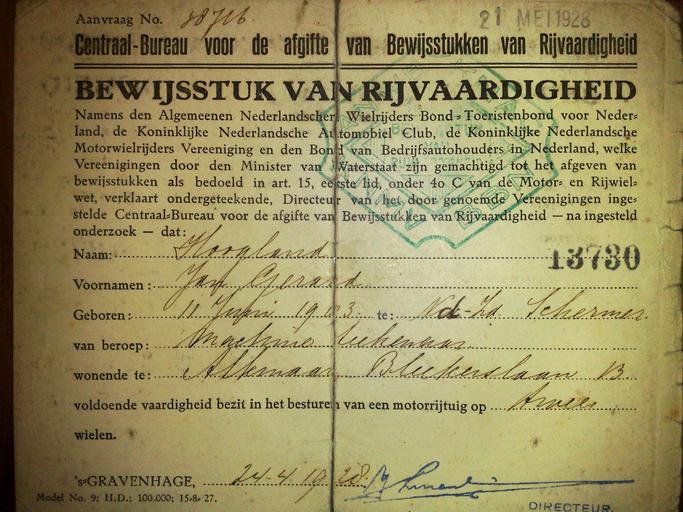 Aanvraag No. 21 MEI 1928
Centraal-Bureau voor de afgifte van Bewijsstukken van Rijvaardigheid
BEWIJSSTUK VAN RIJVAARDIGHEID
Namens den Algemeenen Nederlandschen Wielrijders Bond-Toeristenbond voor Neder-
land, de Koninklijke Nederlandsche Automobiel Club, de Koninklijke Nederlandsche
Motorwielrijders Vereeniging en den Bond van Bedrijfsautohouders in Nederland, welke
Vereenigingen door den Minister van Waterstaat zijn gemachtigd tot het afgeven van
bewijsstukken als bedoeld in art. 15, eerste lid, onder 4o C van de Motor- en Rijwiel-
wet, verklaart ondergeteekende, Directeur van het door genoemde Vereenigingen inge-
stelde Centraal-Bureau voor de afgifte van Bewijsstukken van Rijvaardigheid — na ingesteld
onderzoek — dat:
Naam: Hoogland 13730
Voornamen: Jan Gerard
Geboren: 11 Juni 1903 te: Nd-Zd Schermer.
van beroep: Machine teekenaar
wonende te: Alkmaar Blekerslaan 13
voldoende vaardigheid bezit in het besturen van een motorrijtuig op twee
wielen.
's-GRAVENHAGE, 24-4 1928
Model No. 9; H.D.; 100.000; 15-8-27.
DIRECTEUR.